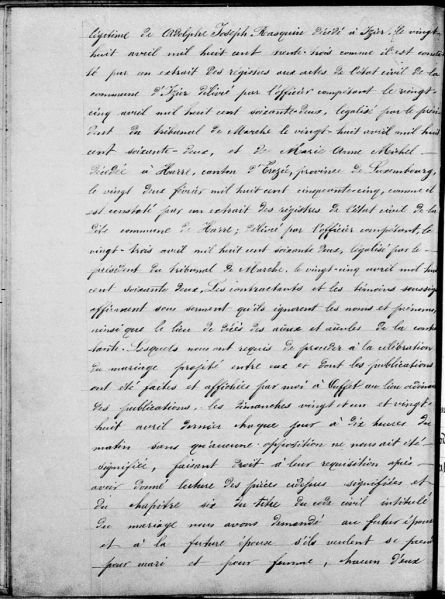 légitime de Adolphe Joseph Rasquin décédé à Izier, le vingt
huit avril mil huit cent trente-trois comme il est consta
té par un extrait des registres aux actes de l'état civil de la
commune d'Izier délivré par l'officier compétent le vingt-
cinq avril mil huit cent soixante-deux, légalisé par le prési
dent du tribunal de Marche le vingt-huit avril mil huit
cent soixante-deux, et de Marie Anne Michel
décédée à Harre, canton d'Erezée, province de Luxembourg,
le vingt deux février mil huit cent cinquante-cinq, comme il
est constaté par un extrait des registres de l'état civil de la
dite commune de Harre, délivré par l'officier compétent, le
vingt-trois avril mil huit cent soixante deux, légalisé par le
président du tribunal de Marche, le vingt-cinq avril mil huit
cent soixante deux, Les contractants et les témoins soussig
affirment sous serment qu'ils ignorent les noms et prénoms,
ainsi que le lieu de décès des aïeux et aïeules de la contrac
tante. Lesquels nous ont requis de procéder à la célébration
du mariage projeté entre eux et dont les publications
ont été faites et affichées par moi à Ouffet au lieu ordinaire
des publications, les dimanches vingt et un et vingt-
huit avril dernier chaque jour à dix heures du
matin sans qu'aucune opposition ne nous ait été
signifiée, faisant droit à leur requisition après
avoir donné lecture des pièces cidessus signifiées et
du chapitre six du titre du code civil intitulé
du mariage nous avons demandé au futur époux
et à la future épouse s'ils veulent se prendre
pour mari et pour femme, chacun d'eux